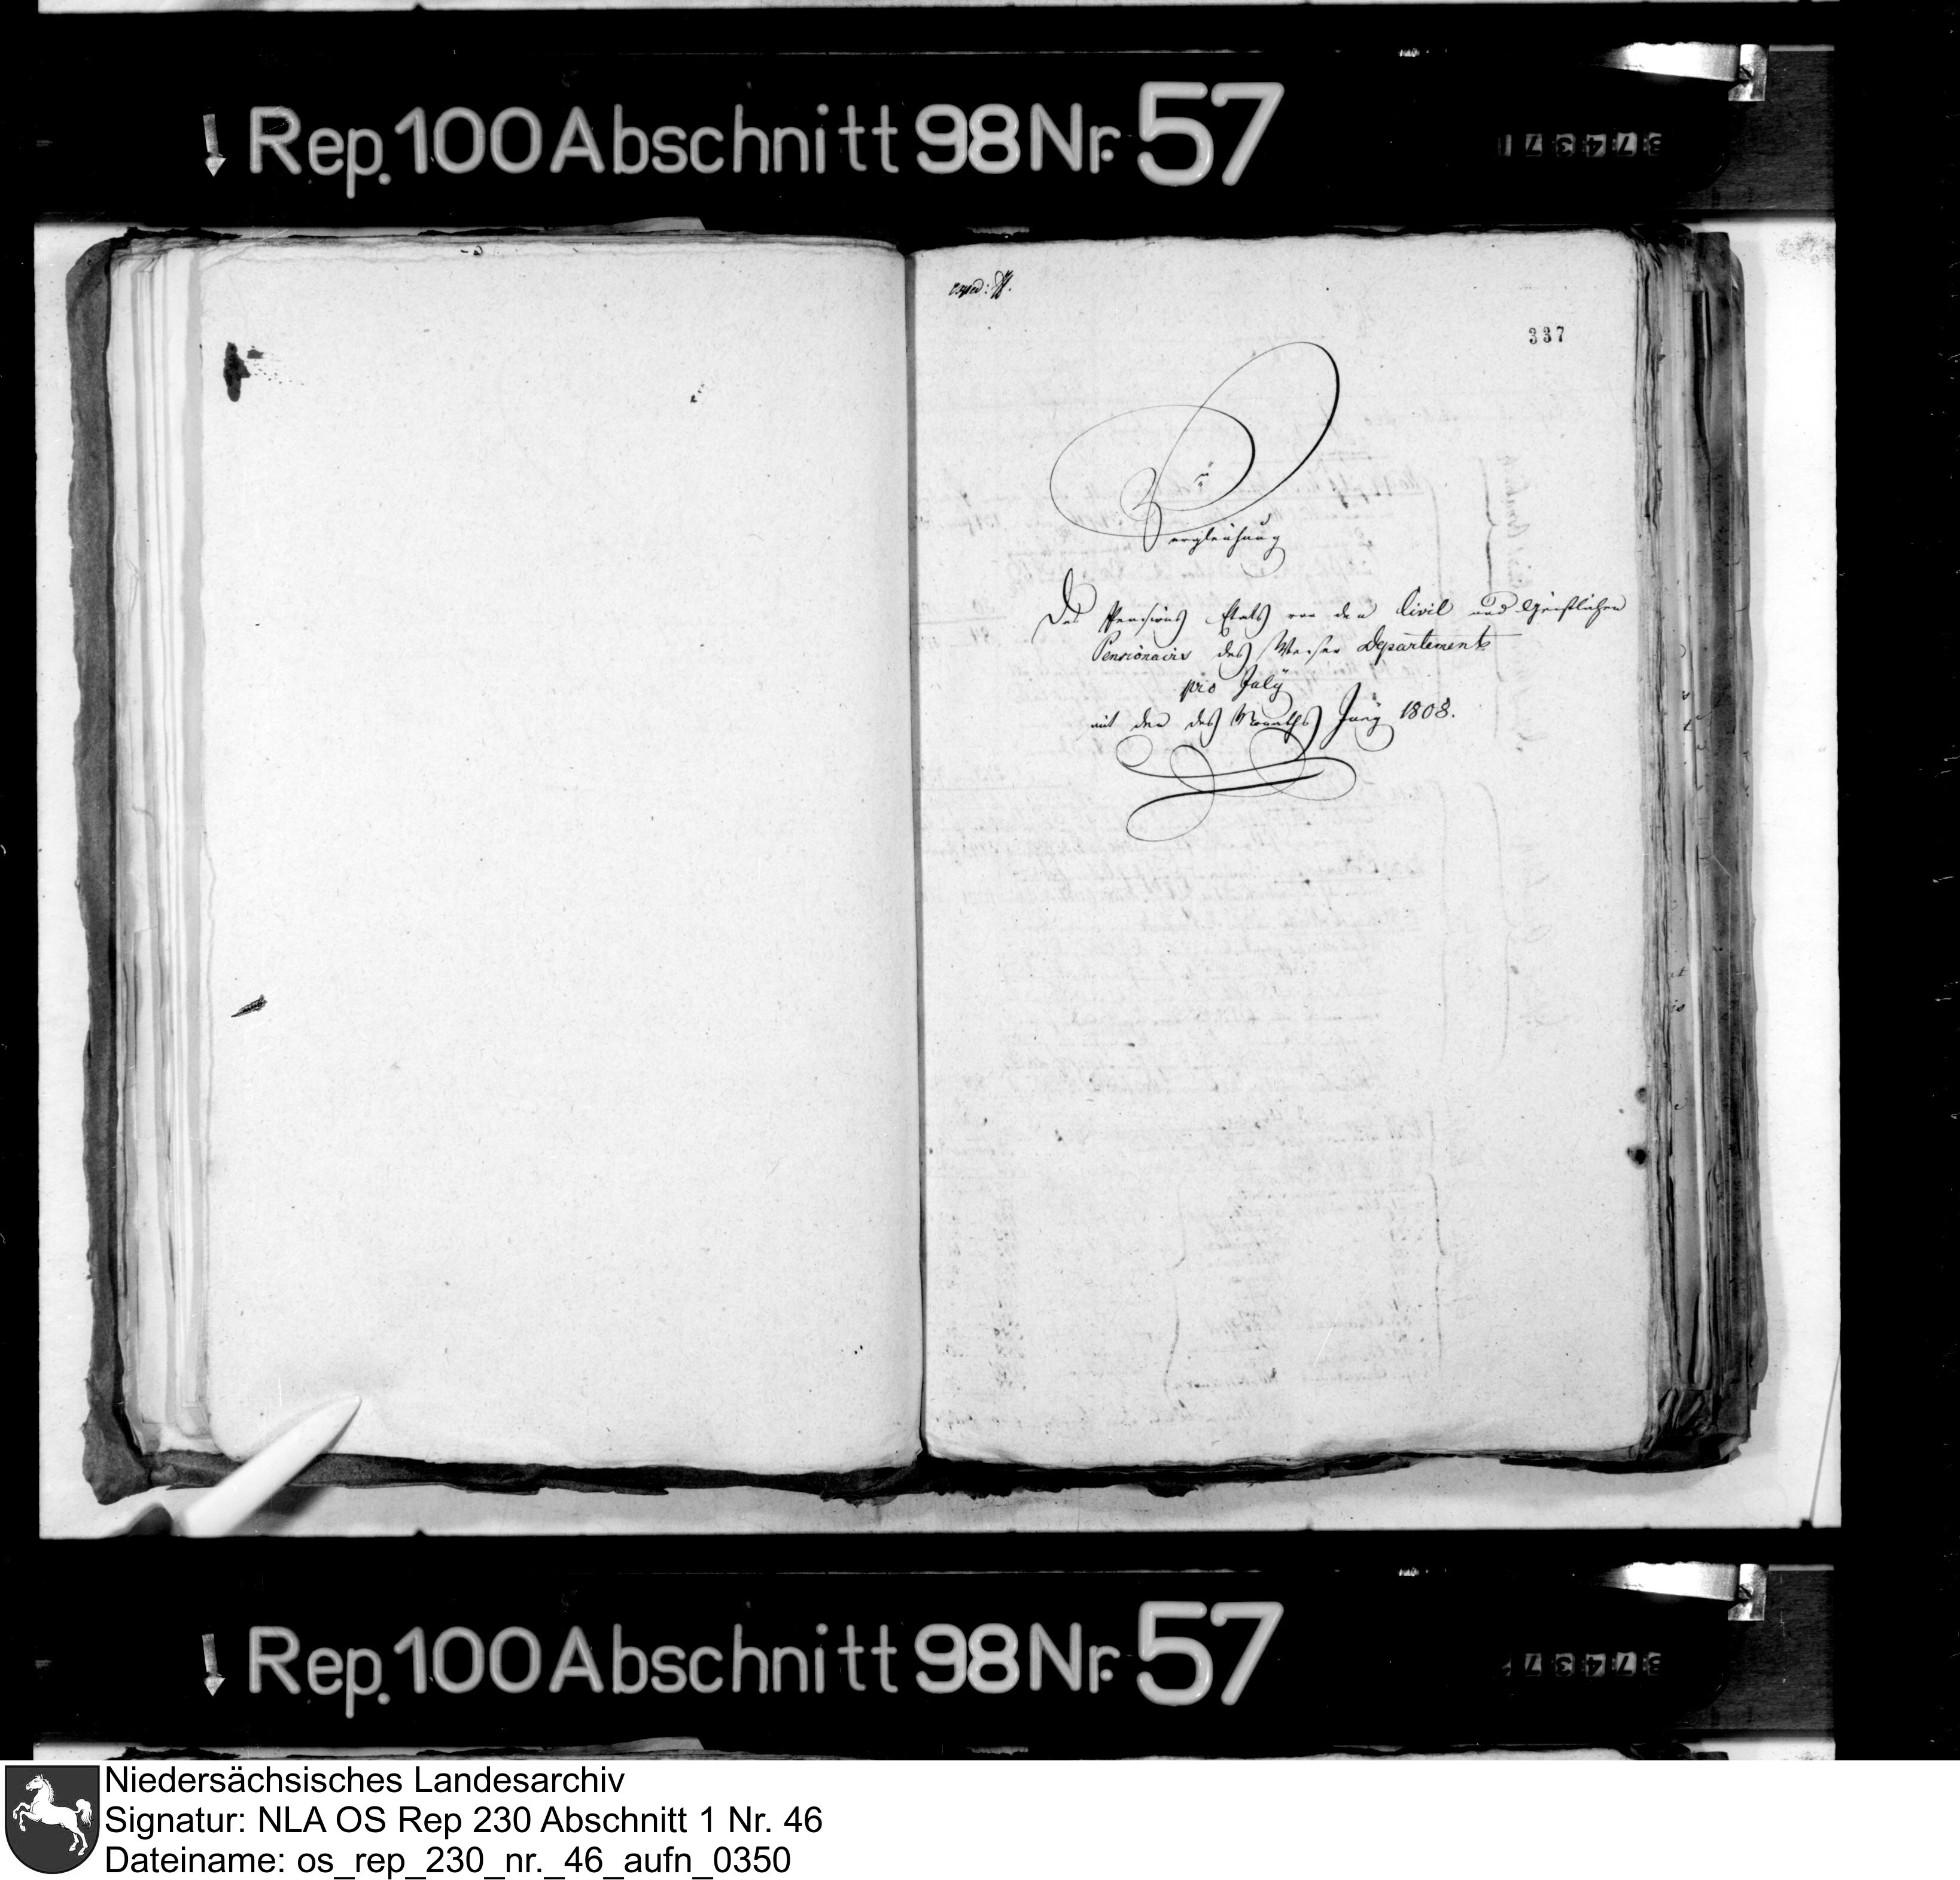 Rep. 100 Abschnitt 98 Nr. 57
exped:
337
Vergleichung
Des Pensions Etats von den Civil und Geistlichen
Pensionairs des Weser Departements
pro July
mit den des Monaths Juny 1808.
Rep. 100 Abschnitt 98 Nr. 57
Niedersächsisches Landesarchiv
Signatur: NLA OS Rep 230 Abschnitt 1 Nr. 46
Dateiname: os_rep_230_nr._46_aufn_0350